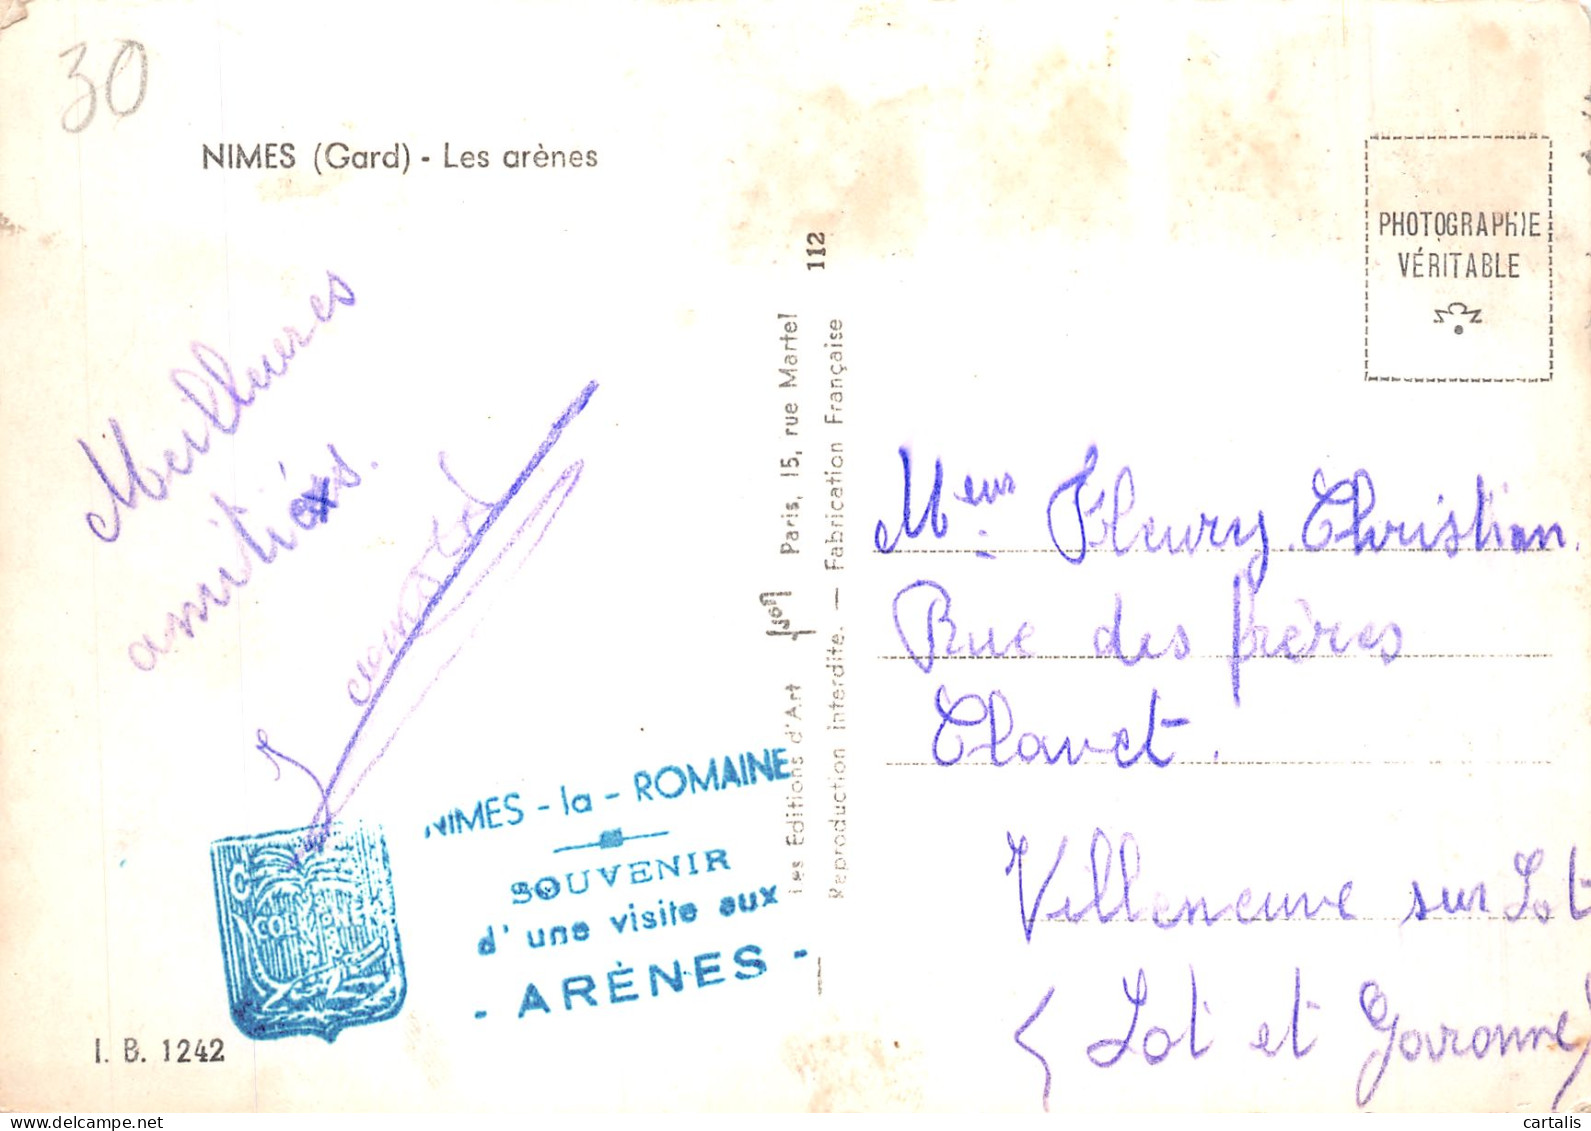 30
NIMES (Gard) - Les arènes
Meilleures
amitiés.
NIMES - la - ROMAINE
SOUVENIR
d'une visite aux
- ARÈNES -
COL
I. B. 1242
Les Editions d'Art Yvon Paris, 15, rue Martel
112
Reproduction interdite. — Fabrication Française
PHOTOGRAPHIE
VÉRITABLE
Meur Fleury Christian.
Rue des frères
Clavet.
Villeneuve sur Lot
(Lot et Garonne)
cartalis